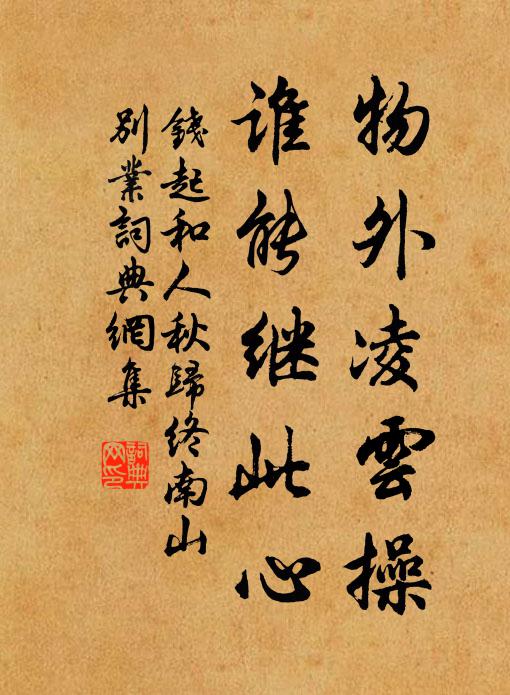 物外凌雲操
誰能继此心
錢起和人秋歸终南山
别業詞典網集
詞典
网印